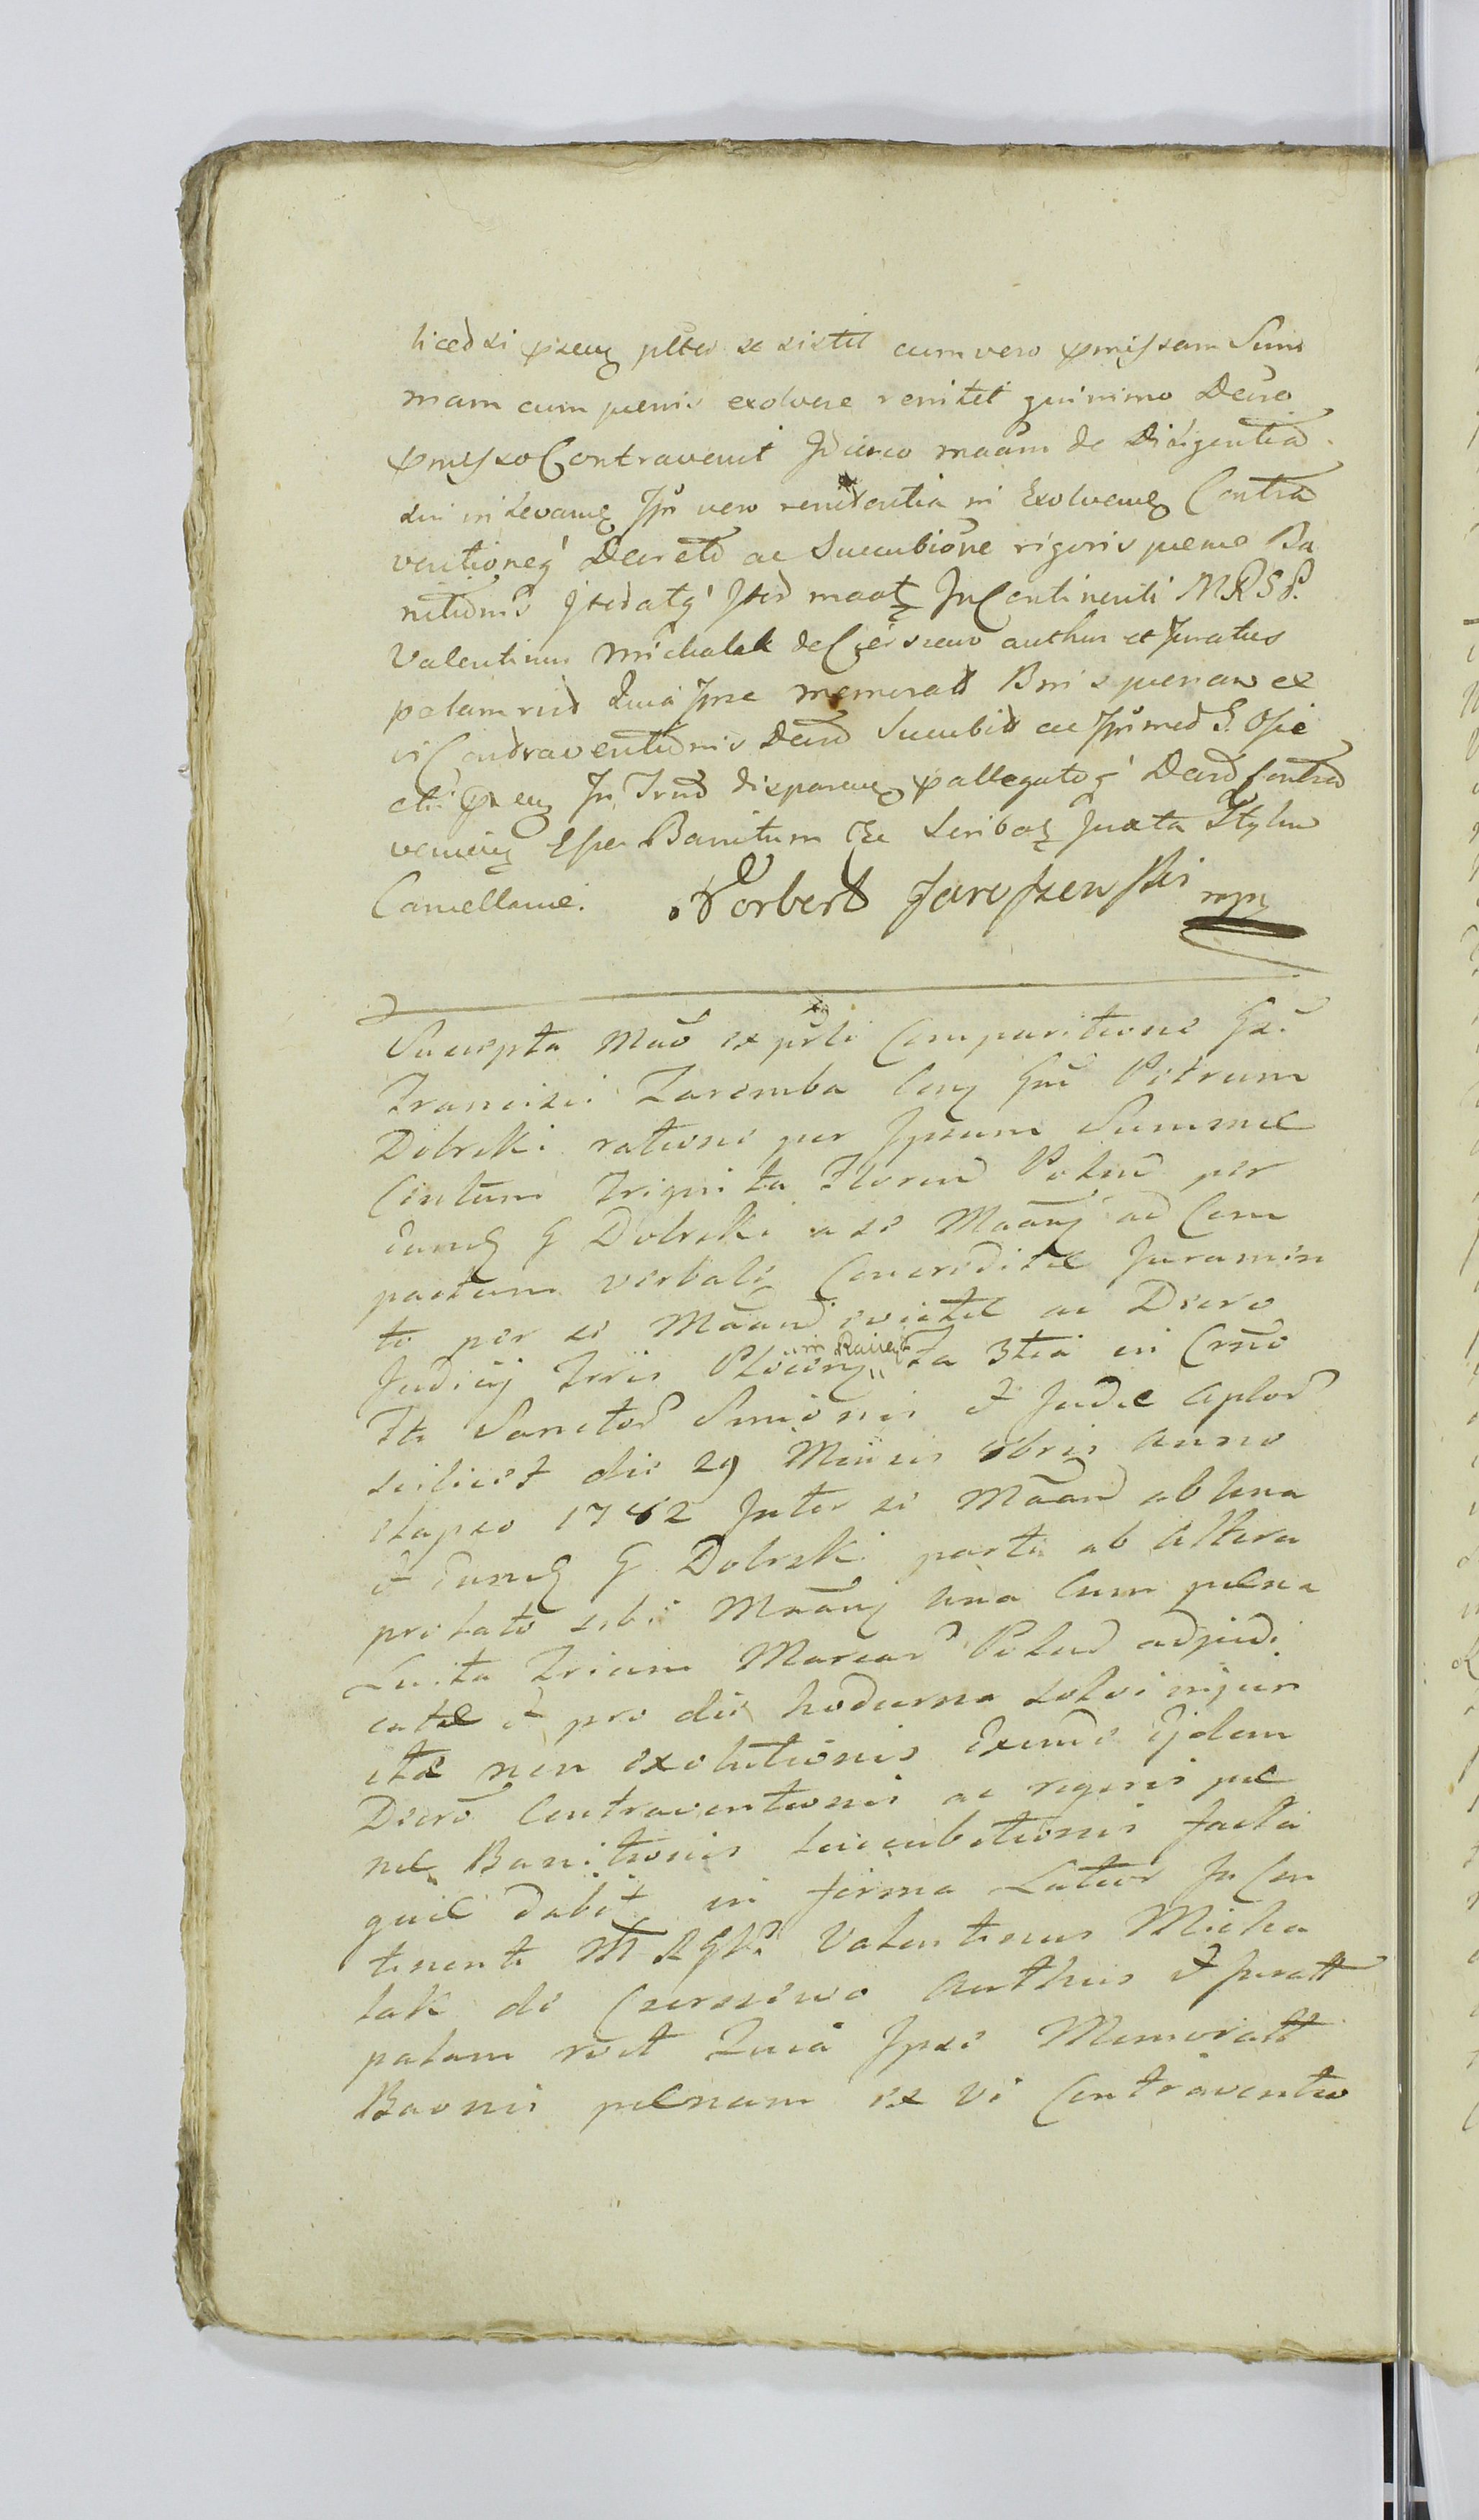 liced si se sistit cum vero pmissam Sum
mam cum penis exolvere renitet quinimo Decro
pmisso Contravenit Idcirco maam de Diligentia
sui in vero renitentia in Exolvene Contra
ventioneq Decreto ac Succubione rigoris pene Ba
nitionis maat In Continenti M.R.S.P.
Valentinus Michalak de Cierszewo authus et Juratus
palam rid Quia Ipse memorats Bnis penam ex
vi Contraventionis Decro Succubit ac
In disparen pallegatoq Decro Contra
venien Esse Banitum Scribat Juxta Stylum
Cancellarie. Norbert Jaroszewski mp
Suscepta Mao ex prli Comparitione Gz.
Francisci Zaremba Cong Gm Petrum
Dobrski ratione per Ipsum Summe
Centum Triginta Floren Polon per
eund G Dobrski a se Maanj ad Com
pactum verbale Concreditae Juramen
to per se Maand evictae ac Decro
Judicij Trris Plocens in Raciąż fa 3tia in Crno
Ft Sanctor Simonis et Judae Aplor
scilicet die 29 Mensis 8bris Anno
elapso 1762 Inter se Maand ab una
et eund G Dobrski parte ab Altera
prolato sibi Maanj una Cum paena
Luita Trium Marcar Polon adjudi
catae et pro die hodierna solvi injun
ctae non exolutionis Exinde ejdem
Decro Contraventionis ac rigoris pae
nae Banitionis succubitionis facta
quae dabit in forma Lator In Con
tinenti M R G P. Valentinus Micha
lak de Czerszewo Authus et Juratt
palam rcit Quia Ipse Memoratt
Baonis paenam ex vi Contraventio